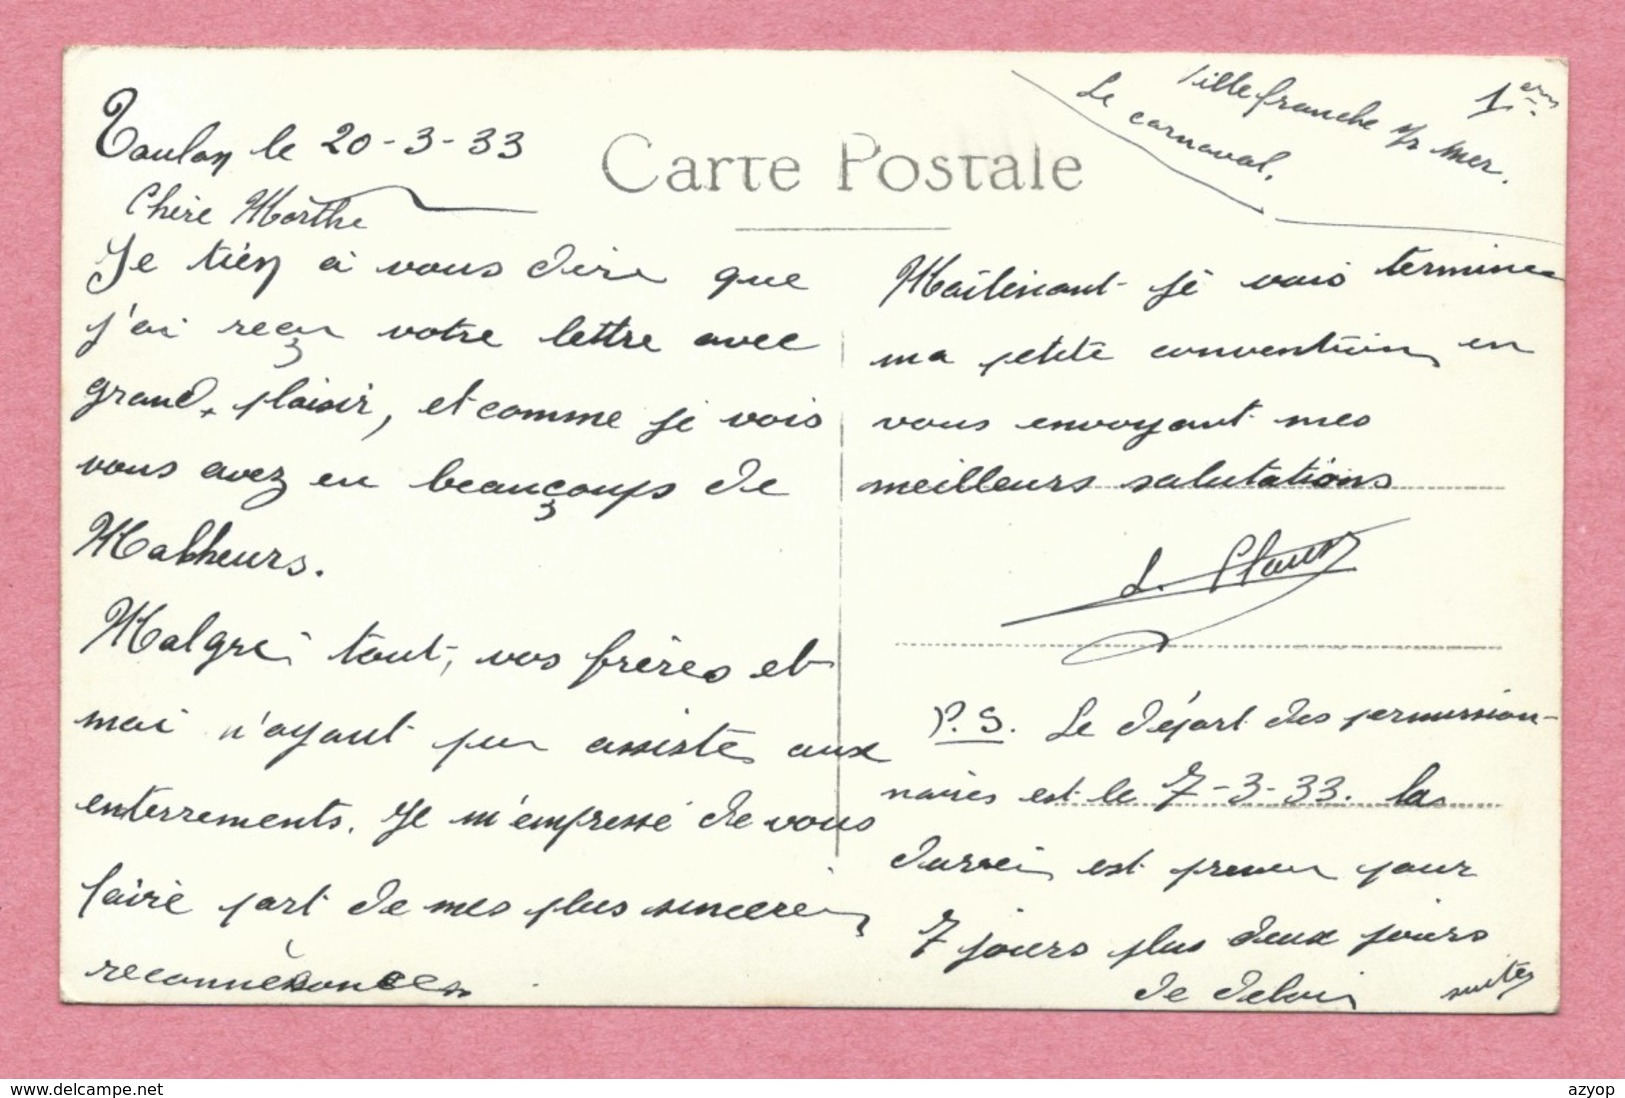 Toulon le 20-3-33
Carte Postale
Villefranche s/r Mer.
Le carnaval.
1er
Chère Marthe
Je tien à vous dire que
j'ai reçu votre lettre avec
grand, plaisir, et comme je vois
vous avez eu beauçoups de
Malheurs.
Malgré tout, vos frères et
moi n'ayant pu assisté aux
enterrements. Je m'empresse de vous
faire part de mes plus sincère
reconnèsances
Maitenant je vais termine
ma petite convention en
vous envoyant mes
meilleurs salutations
L.
P.S. Le départ des permission-
naires est le 7-3-33. la
durrei est prevu pour
7 jours plus deux jours
de deloi suites
www.delcampe.net
azyop